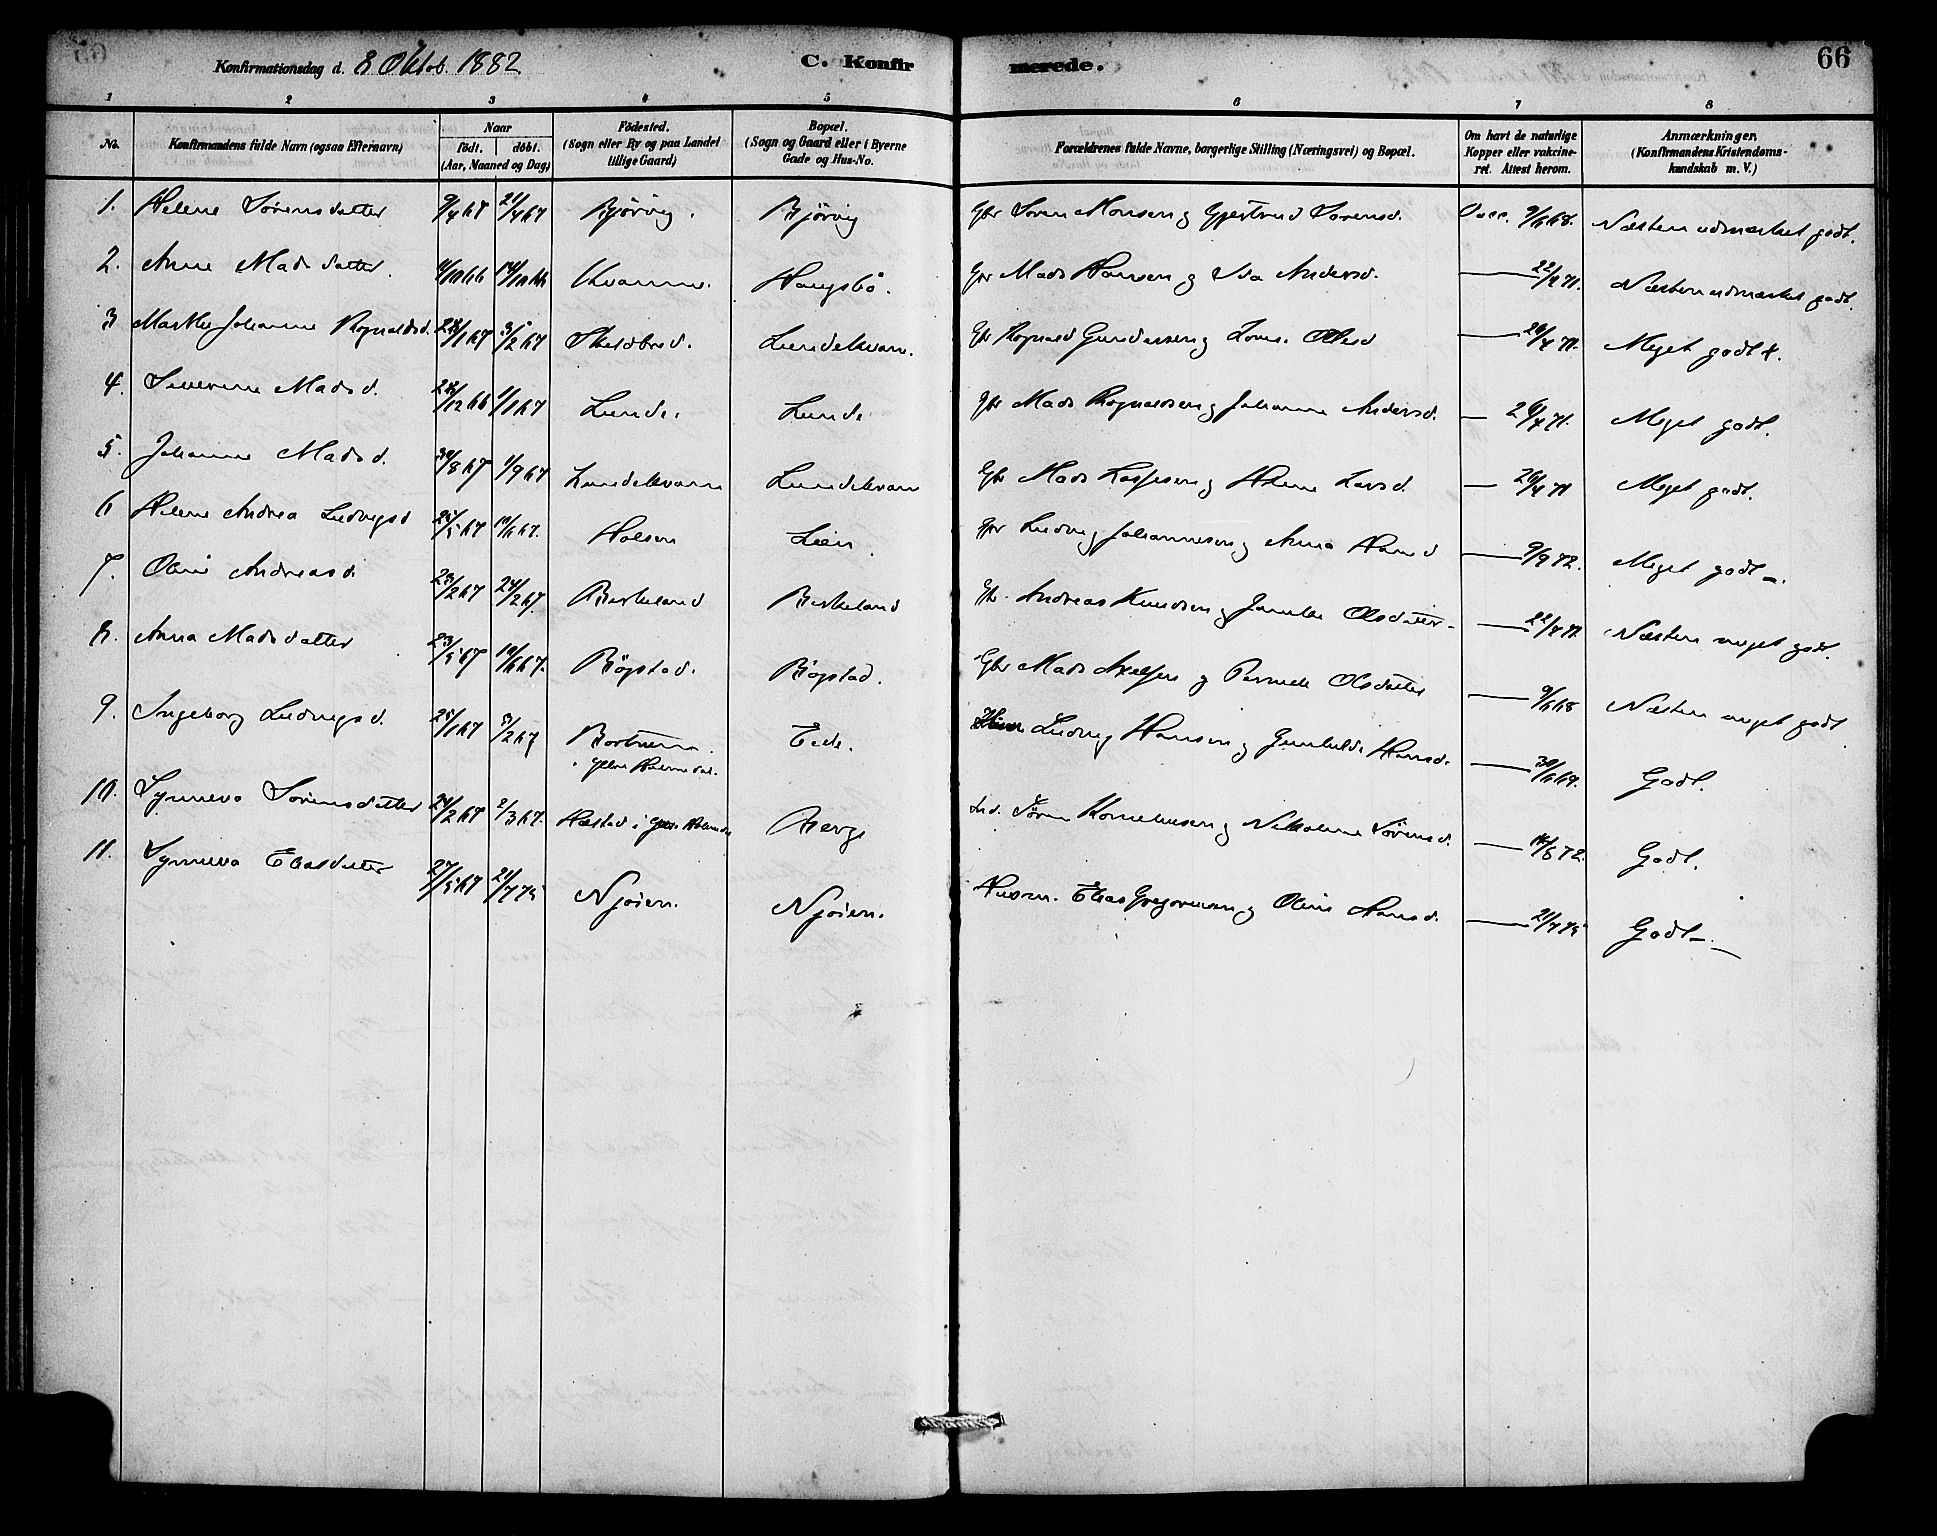 Konfirmationsdag d. 8 Oktob. 1882 C. Konfirmerede. 66
1 2 3 4 5 6 7 8
No. Konfirmandens fulde Navn (ogsaa Efternavn) Naar födt. döbt. (Aar, Maaned og Dag) Födested. (Sogn eller By og paa Landet tillige Gaard) Bopæl. (Sogn og Gaard eller i Byerne Gade og Hus-No. Forældrenes fulde Navne, borgerlige Stilling (Næringsvei) og Bopæl. Om havt de naturlige Kopper eller vakcineret. Attest herom. Anmærkninger. (Konfirmandens Kristendomskundskab m. V.)
1. Helene Sørensdatter 9/4 67 21/4 67 Bjørvig. Bjørvig Gbr Søren Monsen og Gjertrud Sørensd. Vacc. 9/6 68. Næsten udmærket godt.
2. Anne Madsdatter. 14/10 66 Kvamme. Haugsbø. Gbr Mads Hansen og Andersd. — 22/ 71. Næsten udmærket godt.
3 Marthe Johanne Rognaldsd. 28/1 67 3/2 67 Lundekvam. Gbr Rognald Gundersen og Olsd — 26/4 71. Meget godt +.
4. Severine Madsd. 28/12 66 1/1 67 Lunde. Lunde Gbr Mads Rognaldsen og Johanne Andersd. — 26/4 71. Meget godt.
5. Johanne Madsd. 30/8 67 1/9 67 Lundekvam Lundekvam Gbr Mads Lassesen og Helene Larsd. — 26/4 71 Meget godt.
6 Helene Andrea Ludvigsd 25/5 67 10/6 67. Holsen Lien. Gbr Ludvig Johannesen og Anna Hansd — 9/9 72. Meget godt -.
7. Oline Andreasd. 23/2 67 24/2 67. Birkeland Birkeland Gbr. Andreas Knudsen og Olsdatter — 22/ Næsten meget godt.
8. Anna Madsdatter 23/5 67 10/6 67. Bögstad. Bögstad. Gbr Mads Axelsen og Pernele Olsdatter — 9/6 68 Næsten meget godt
9. Ingeborg Ludvigsd. 25/1 67 3/2 67 Eide. Ludvig Hansen og Gunhilde Hansd. — 30/6 69. Godt.
10. Synneva Sørensdatter 24/2 67 2/3 67. Hæstad i Berge Ind. Søren Korneliusen og Nikoline Sørensd. — /6 72. Godt.
11. Synneva Eliasdatter 27/5 67 21/7 75 Njøien. Njøien. Husm. Elias Gregoriusen og Oline Hansd. — 21/7 75 Godt -.